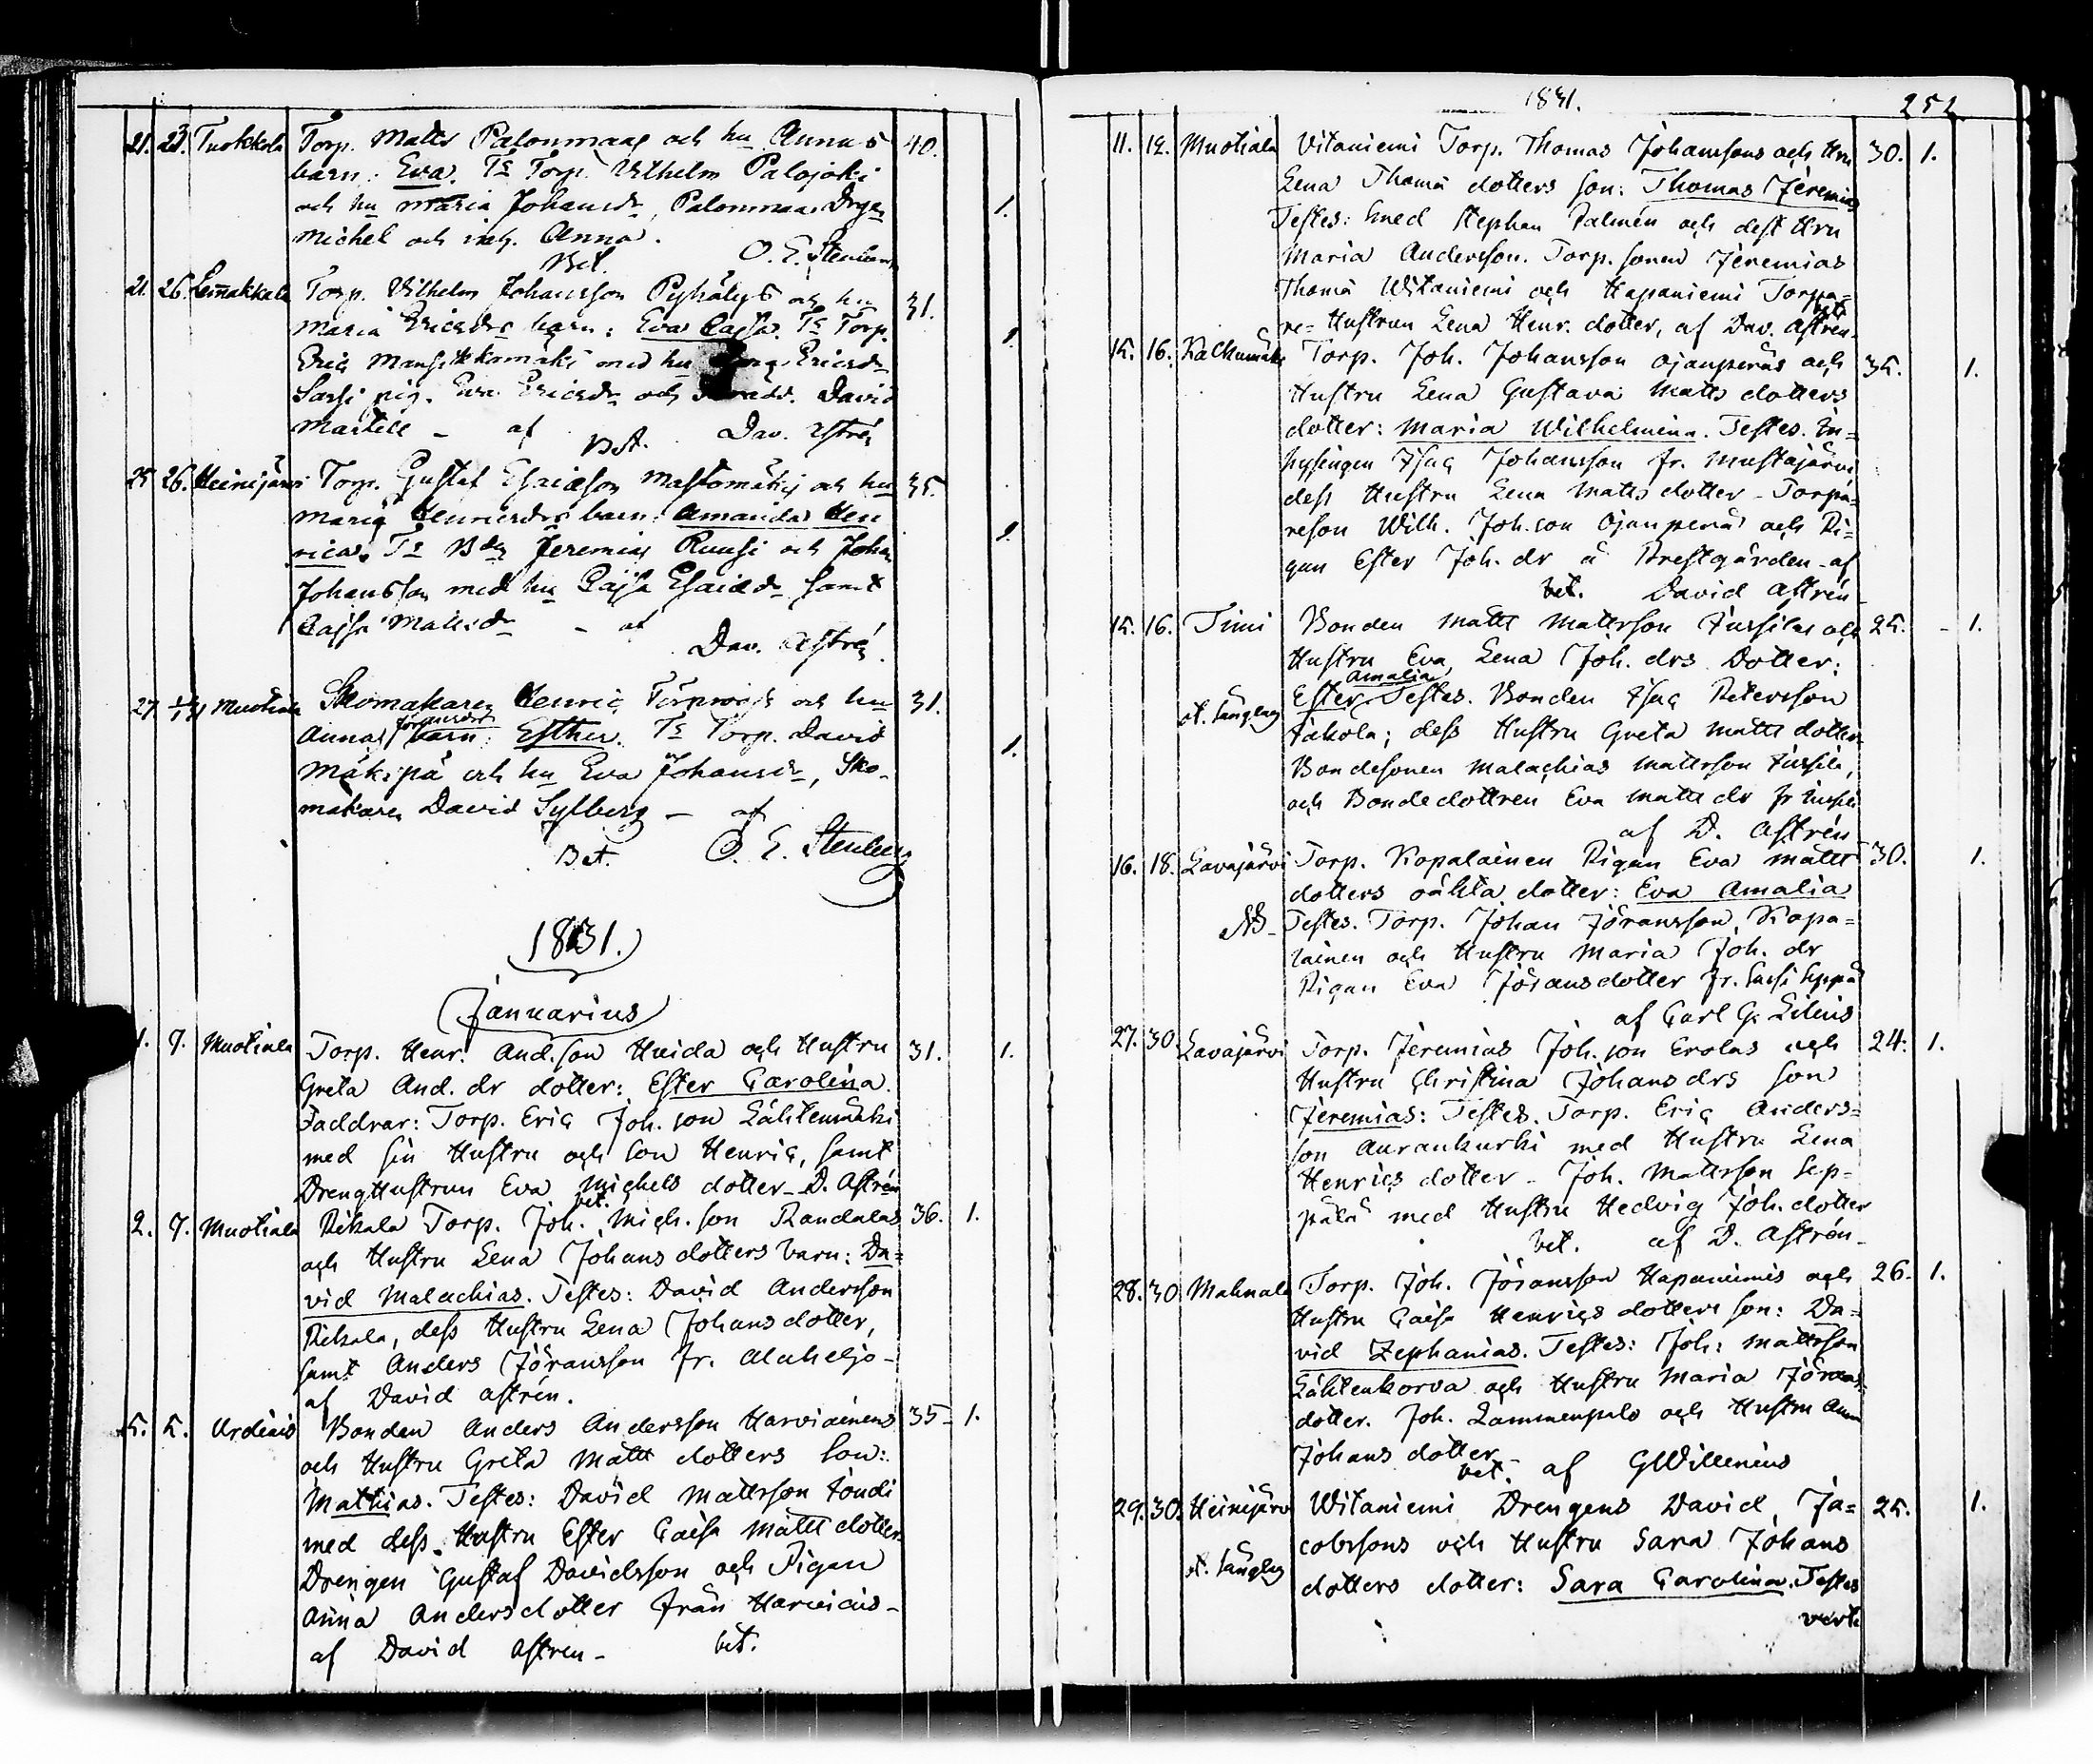 21. 23. Tuokkola Torp. Matts Palonmaas och hu Annas 40.
barn: Eva. Ts Torp. Vilhelm Palojoki
och hu Maria Johansdr, Palonmaa Drgn 1.
Michel och inh. Anna.
Bet. O. E. Stenberg
21. 26. Lemakkala Torp. Vilhelm Johansson Pyhälys och hu 31.
Maria Ericsdrs barn: Eva Cajsa. Ts Torp. 1.
Eric Mansikkamäki med hu Ericsdr
Sassi pig. Eva Ericsdr och David
Martell - af Bet. Dav. Astrén
25 26. Heinijärvi Torp. Gustaf Esaiæson Mastomäkis och hu 35.
Maria Henricsdrs barn: Amanda Hen 1.
rica. Ts Bdn Jeremias Ruusi och Johan
Johansson med hu Cajsa Esaiædr samt
Cajsa Mattsdr - af
Dav. Astrén.
27 1/1 31 Muotiala Skomakaren Henric Törnroos och hu 31.
Annas Göransdrs barn: Esther. Ts Torp. David 1.
Mäkipä och hu Eva Johansdr, Sko-
makaren David Sylberg - af
Bet. O. E. Stenberg
1831.
Januarius
1. 7. Muotiala Torp. Henr. And.son Hvida och Hustru 31. 1.
Greta And. dr dotter: Ester Carolina.
Faddrar: Torp. Eric Joh. son Lähtenmäki
med sin Hustru och Son Henric, samt
DrengHustrun Eva Michels dotter - D. Astrén
bet.
2. 7. Muotiala Rikala Torp. Joh. Mich. son Randalas 36. 1.
och Hustru Lena Johans dotters barn: Da=
vid Malachias. Testes: David Andersson
Rikala, dess Hustru Lena Johans dotter,
samt Anders Jöransson fr. Alaheljo-
af David Astrén.
5. 5. Urdiais Bonden Anders Andersson Harviainens 35- 1.
och Hustru Greta Matts dotters Son:
Mathias. Testes: David Mattsson Londi
med dess Hustru Ester Caisa Matts dotter
Drengen Gustaf Davidsson och Pigan
Anna Andersdotter från Harviais-
af David Astren - bet.
1831. 252
11. 12. Muotiala Vitaniemi Torp. Thomas Johanssons och Hru 30. 1.
Lena Thomæ dotters son: Thomas Jeremias
Testes: Smed Stephan Palmén och dest Hru
Maria Andersson. Torp. sonen Jeremias
Thomæ Witaniemi och Hapaniemi Torpa=
re=Hustrun Lena Henr. dotter, af Dav. Astrén.
bet
15. 16. Kalkunmäki Torp. Joh. Johansson Ojanperäs och 35. 1.
Hustru Lena Gustava Matts dotters
dotter: Maria Wilhelmina. Testes. In=
hysingen Isac Johansson fr. Mustajärvi
dess Hustru Lena Matts dotter - Torpa=
reson Wilh. Joh.son Ojanperä och Pi=
gan Ester Joh. dr å Prestgården - af
bet. David Astrén -
15. 16. Timi Bonden Matts Mattsson Jussilas och 25. - 1.
Hustru Eva Lena Joh. drs Dotter:
ot. Sängelag Ester Amalia. Testes. Bonden Isac Petersson
Jakola; dess Hustru Greta Matts dotter
Bondesonen Malachias Mattsson Jussila,
och Bondedottren Eva Matts dr fr Jussila
af D. Astrén
16. 18. Lavajärvi Torp. Kopalainen Pigan Eva Matts 30. 1.
dotters oäkta dotter: Eva Amalia
NB - Testes. Torp. Johan Jöransson Kopa=
lainen och Hustru Maria Joh. dr
Pigan Eva Jöransdotter fr. Sassi Seppä
af Carl G. Lilius
27. 30. Lavajärvi Torp. Jeremias Joh. son Erolas och 24: 1.
Hustru Christina Johans drs son
Jeremias: Testes. Torp. Eric Anders=
son Aurankurki med Hustru Lena
Henrics dotter - Joh. Mattsson Sep=
pälä med Hustru Hedvig Joh. dotter
bet. af D. Astrén -
28. 30 Mahnala Torp. Joh. Jöransson Hapaniemis och 26. 1.
Hustru Caisa Henrics dotters son: Da=
vid Zephanias. Testes: Joh: Mattsson
Lähtenkorva och Hustru Maria Jörans-
dotter. Joh. Lammenpalo och Hustru Anna
Johans dotter -
bet. af GWillenius
29. 30. Heinijärvi Witaniemi Drengens David Ja= 25. 1.
cobssons och Hustru Sara Johans
dotters dotter: Sara Carolina. Testes
verte